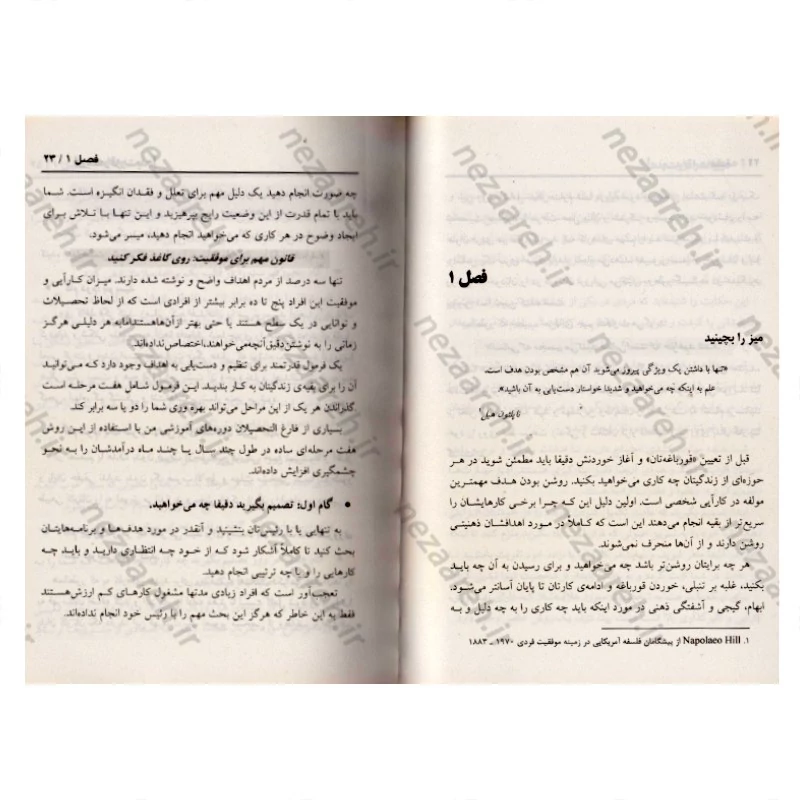 فصل ۱
میز را بچینید
«تنها با داشتن یک ویژگی پیروز می‌شوید آن هم مشخص بودن هدف است.
علم به اینکه چه می‌خواهید و شدیدا خواستار دست‌یابی به آن باشید».
ناپلئون هیل
قبل از تعیین «قورباغه‌تان» و آغاز خوردنش دقیقا باید مطمئن شوید در هر
حوزه‌ای از زندگیتان چه کاری می‌خواهید بکنید. روشن بودن هدف مهمترین
مولفه در کارآیی شخصی است. اولین دلیل این که چـرا برخی کارهایشان را
سریع‌تر از بقیه انجام می‌دهند این است که کاملاً در مورد اهدافشان ذهنیتی
روشن دارند و از آن‌ها منحرف نمی‌شوند.
هر چه برایتان روشن‌تر باشد چه می‌خواهید و برای رسیدن به آن چه باید
بکنید، غلبه بر تنبلی، خوردن قورباغه و ادامه‌ی کارتان تا پایان آسانتر می‌شود،
ابهام، گیجی و آشفتگی ذهنی در مورد اینکه باید چه کاری را به چه دلیل و به
۱. Napolaeo Hill از پیشگامان فلسفه آمریکایی در زمینه موفقیت فردی ۱۹۷۰ ـ ۱۸۸۳
فصل ۱ / ۲۳
چه صورت انجام دهید یک دلیل مهم برای تعلل و فقدان انگیزه است. شما
باید با تمام قدرت از این وضعیت رایج بپرهیزید و این تنها با تلاش برای
ایجاد وضوح در هر کاری که می‌خواهید انجام دهید، میسر می‌شود.
قانون مهم برای موفقیت: روی کاغذ فکر کنید
تنها سه درصد از مردم اهداف واضح و نوشته شده دارند. میزان کارآیی و
موفقیت این افراد پنج تا ده برابر بیشتر از افرادی است که از لحاظ تحصیلات
و توانایی در یک سطح هستند یا حتی بهتر از آن‌ها هستند اما به هر دلیلی هرگز
زمانی را به نوشتن دقیق آنچه می‌خواهند، اختصاص نداده‌اند.
یک فرمول قدرتمند برای تنظیم و دست‌یابی به اهداف وجود دارد که می‌توانید
آن را برای بقیه‌ی زندگیتان به کار بندید. این فرمول شامل هفت مرحله است
گذراندن هر یک از این مراحل می‌تواند بهره وری شما را دو یا سه برابر کند.
بسیاری از فارغ التحصیلان دوره‌های آموزشی من با استفاده از این روش
هفت مرحله‌ای ساده در طول چند سال یا چند ماه درآمدشان را به نحو
چشمگیری افزایش داده‌اند.
• گام اول: تصمیم بگیرید دقیقا چه می‌خواهید.
به تنهایی یا با رئیس‌تان بنشینید و آنقدر در مورد هدف‌ها و برنامه‌هایتان
بحث کنید تا کاملاً آشکار شود که از خود چه انتظاری دارید و باید چه
کارهایی را و با چه ترتیبی انجام دهید.
تعجب‌آور است که افراد زیادی مدتها مشغول کارهای کـم ارزش هستند
فقط به این خاطر که هرگز این بحث مهم را با رئیس خود انجام نداده‌اند.
nezaareh.ir